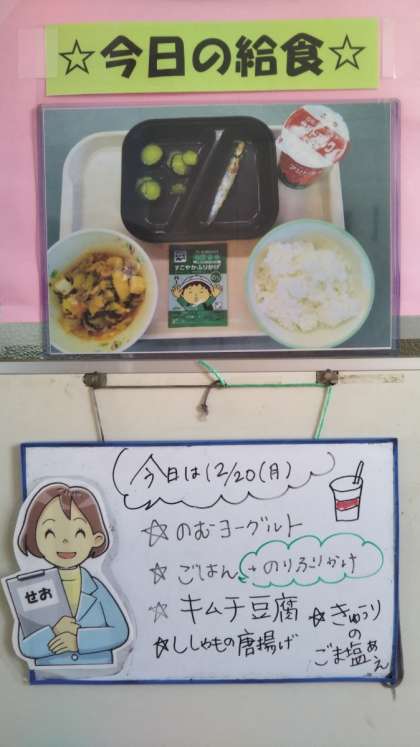 ☆今日の給食☆
すこやかふりかけ
今日は12/20(月)
☆のむヨーグルト
☆ごはん +のりふりかけ
☆キムチ豆腐
☆ししゃもの唐揚げ
☆きゅうりのごま塩あえ
せお